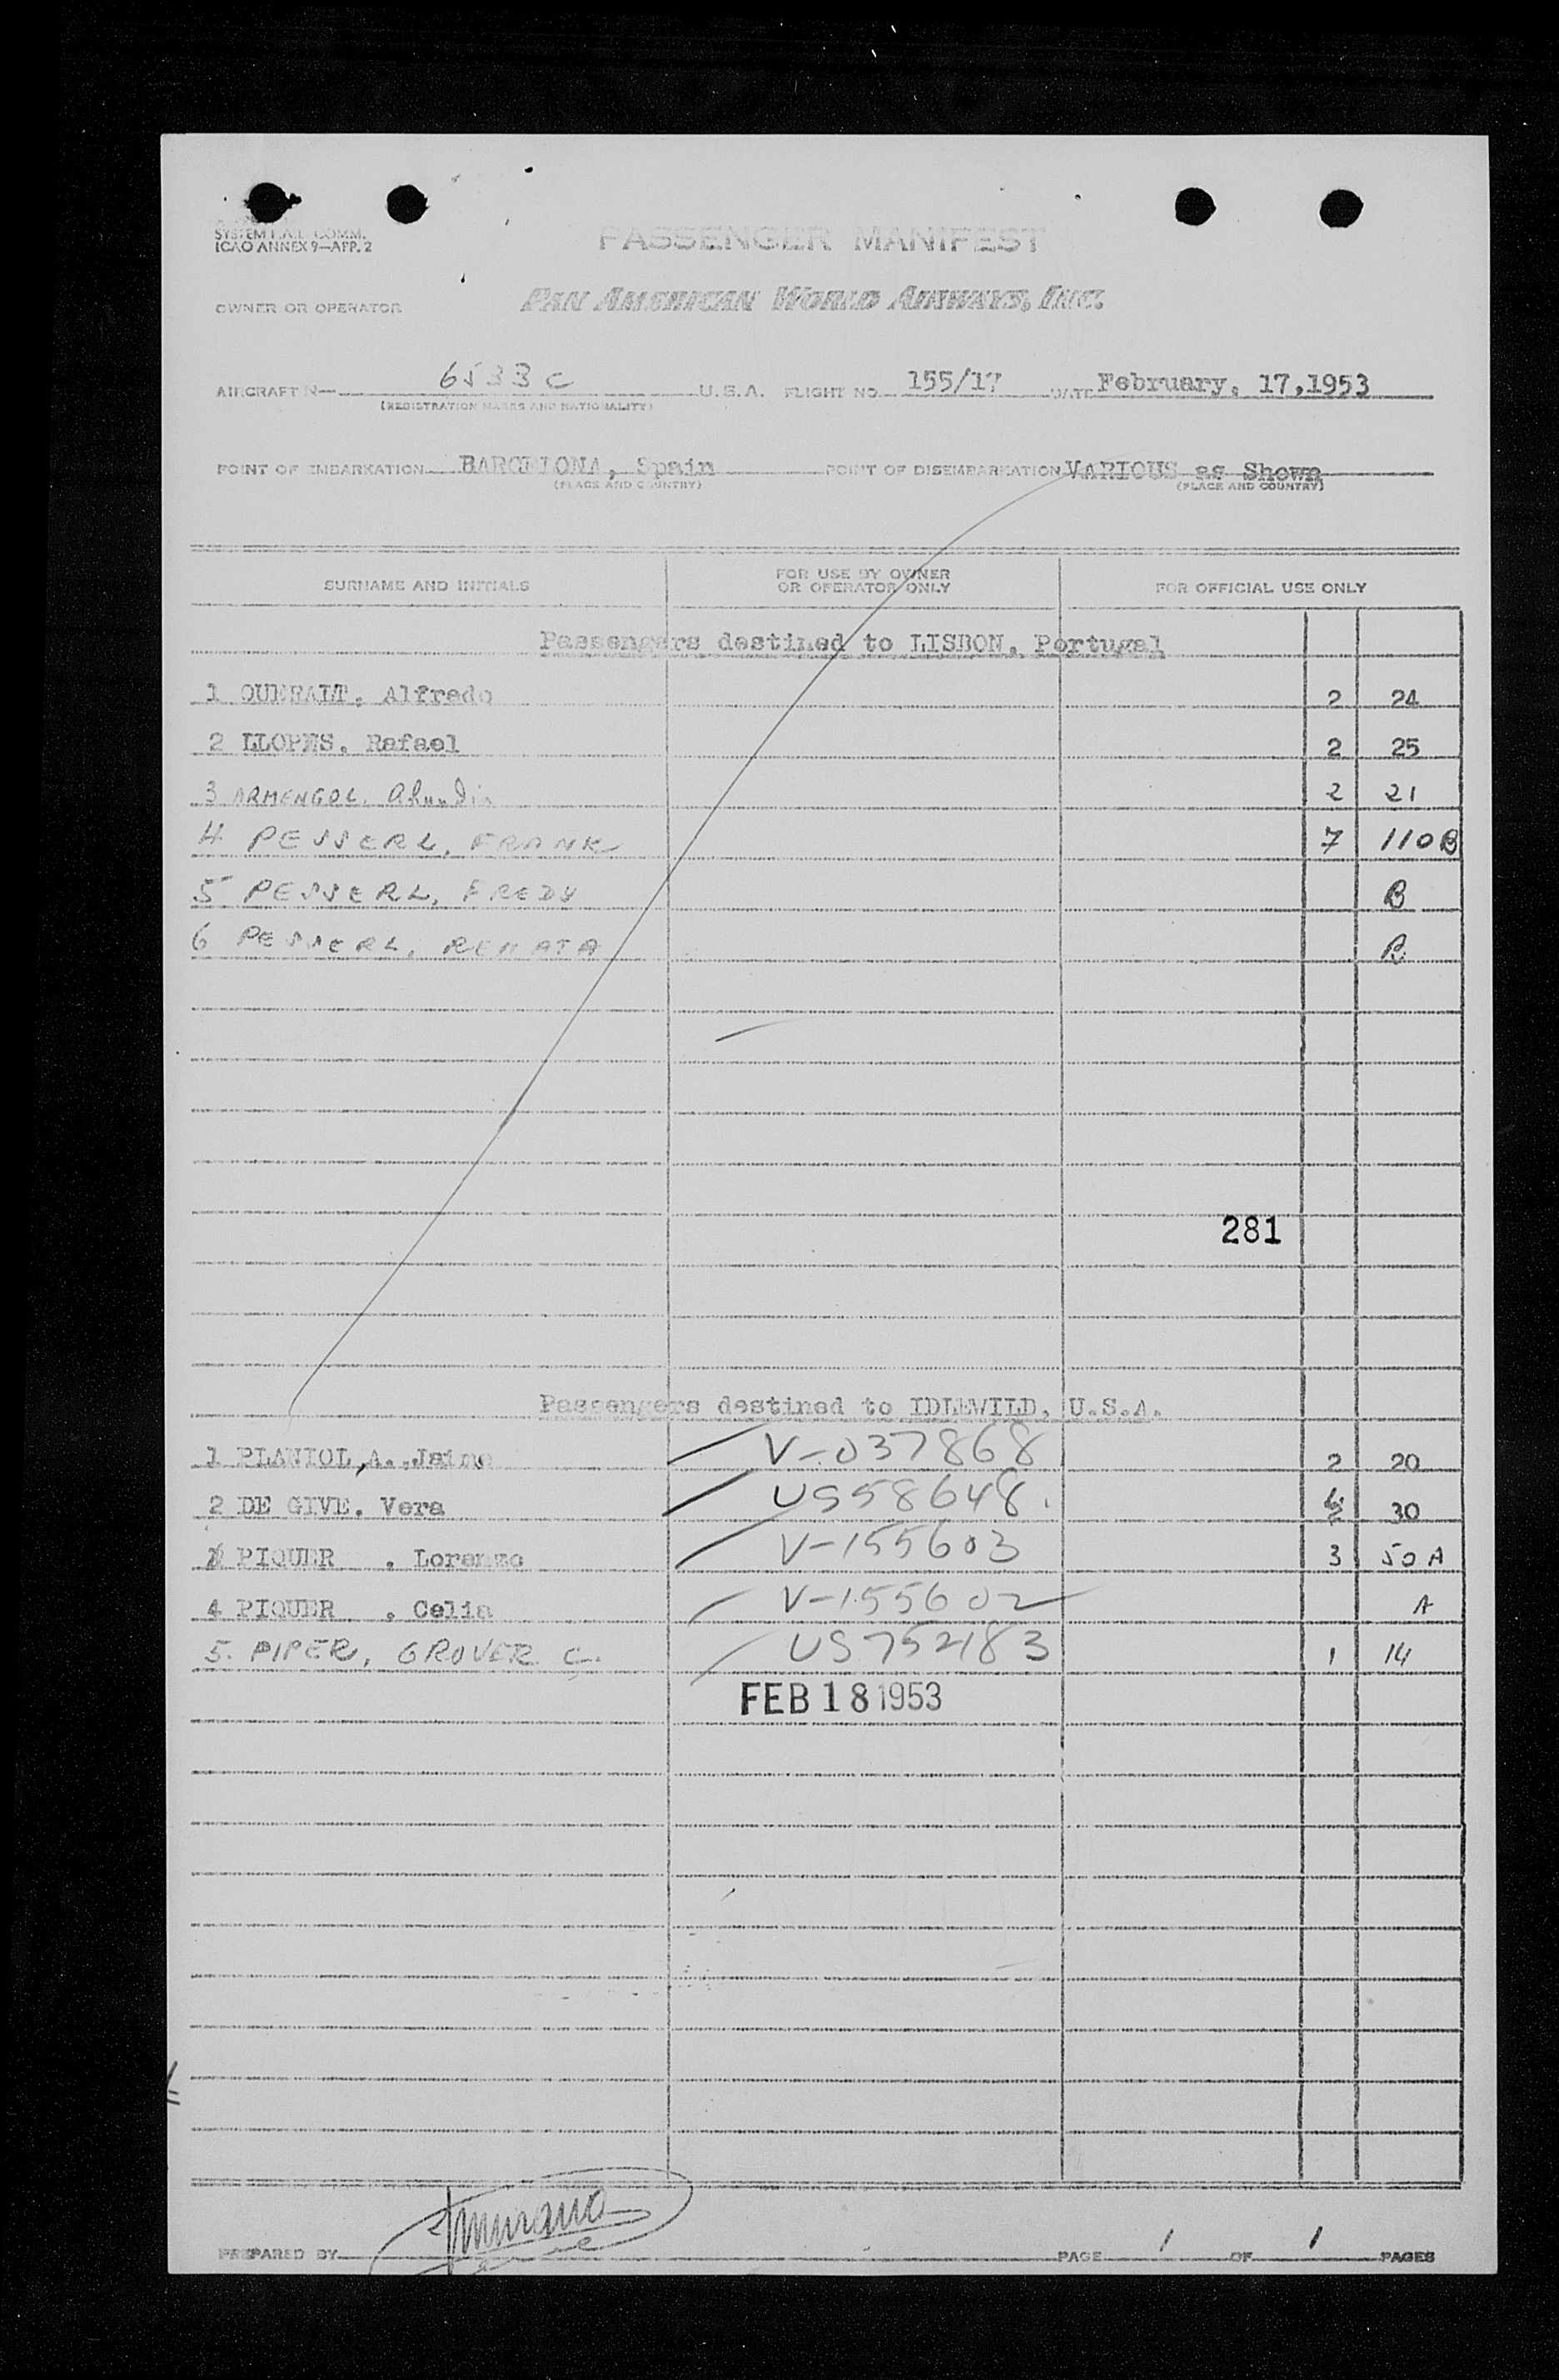 SYSTEM F.A.L. COMM.
ICAO ANNEX 9—APP. 2
PASSENGER MANIFEST
OWNER OR OPERATOR
PAN AMERICAN WORLD AIRWAYS, INC.
AIRCRAFT N— 6533C U.S.A. FLIGHT NO. 155/17 DATE February, 17,1953
(REGISTRATION MARKS AND NATIONALITY)
POINT OF EMBARKATION BARCELONA, Spain POINT OF DISEMBARKATION VARIOUS as Shown
(PLACE AND COUNTRY) (PLACE AND COUNTRY)
SURNAME AND INITIALS FOR USE BY OWNER OR OPERATOR ONLY FOR OFFICIAL USE ONLY
Passengers destined to LISBON, Portugal
1 QUERALT, Alfredo 2 24
2 LLOPES, Rafael 2 25
3 ARMENGOL, 2 21
4 PESSERL, FRANK 7 110B
5 PESSERL, FREDY B
6 PESSERL, RENATA B
281
Passengers destined to IDLEWILD, U.S.A.
1 PLANIOL, A., Jaime V-037868 2 20
2 DE GIVE, Vera US58648. 30
PIQUER , Lorenzo V-155603 3 50A
4 PIQUER , Celia V-155602 A
5. PIPER, GROVER C. US752183 1 14
FEB 18 1953
PREPARED BY PAGE 1 OF 1 PAGES